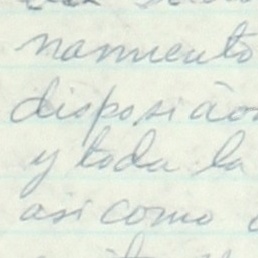 namiento
disposición
y toda la
asi como